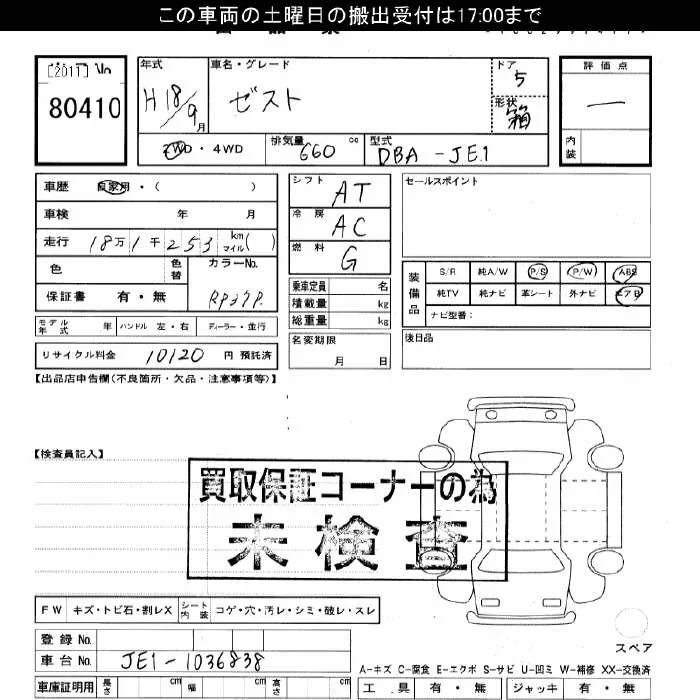 この車両の土曜日の搬出受付は17:00まで
[2011] No
80410
年式
H18/9月
車名・グレード
ゼスト
ドア
5
形状
箱
評価点
一
内装
2WD・4WD
排気量 660 cc
型式 DBA-JE1
車歴 自家用・( )
車検 年 月
走行 18万1千253 km マイル ( )
色 色替 カラーNo.
保証書 有・無
モデル年式 年 ハンドル 左・右 ディーラー・並行
リサイクル料金 10120 円 預託済
シフト AT
冷房 AC
燃料 G
乗車定員 名
積載量 kg
総重量 kg
名変期限
月 日
セールスポイント
装備品
S/R 純A/W P/S P/W ABS
純TV 純ナビ 革シート 外ナビ エアB
ナビ型番:
後日品
【出品店申告欄(不良箇所・欠品・注意事項等)】
【検査員記入】
買取保証コーナーの為
未検査
FW キズ・トビ石・割レX シート内装 コゲ・穴・汚レ・シミ・破レ・スレ
登録No.
車台No. JE1-1036838
車庫証明用 長さ cm 幅 cm 高さ cm
スペア
A-キズ C-腐食 E-エクボ S-サビ U-凹ミ W-補修 XX-交換済
工具 有・無 ジャッキ 有・無